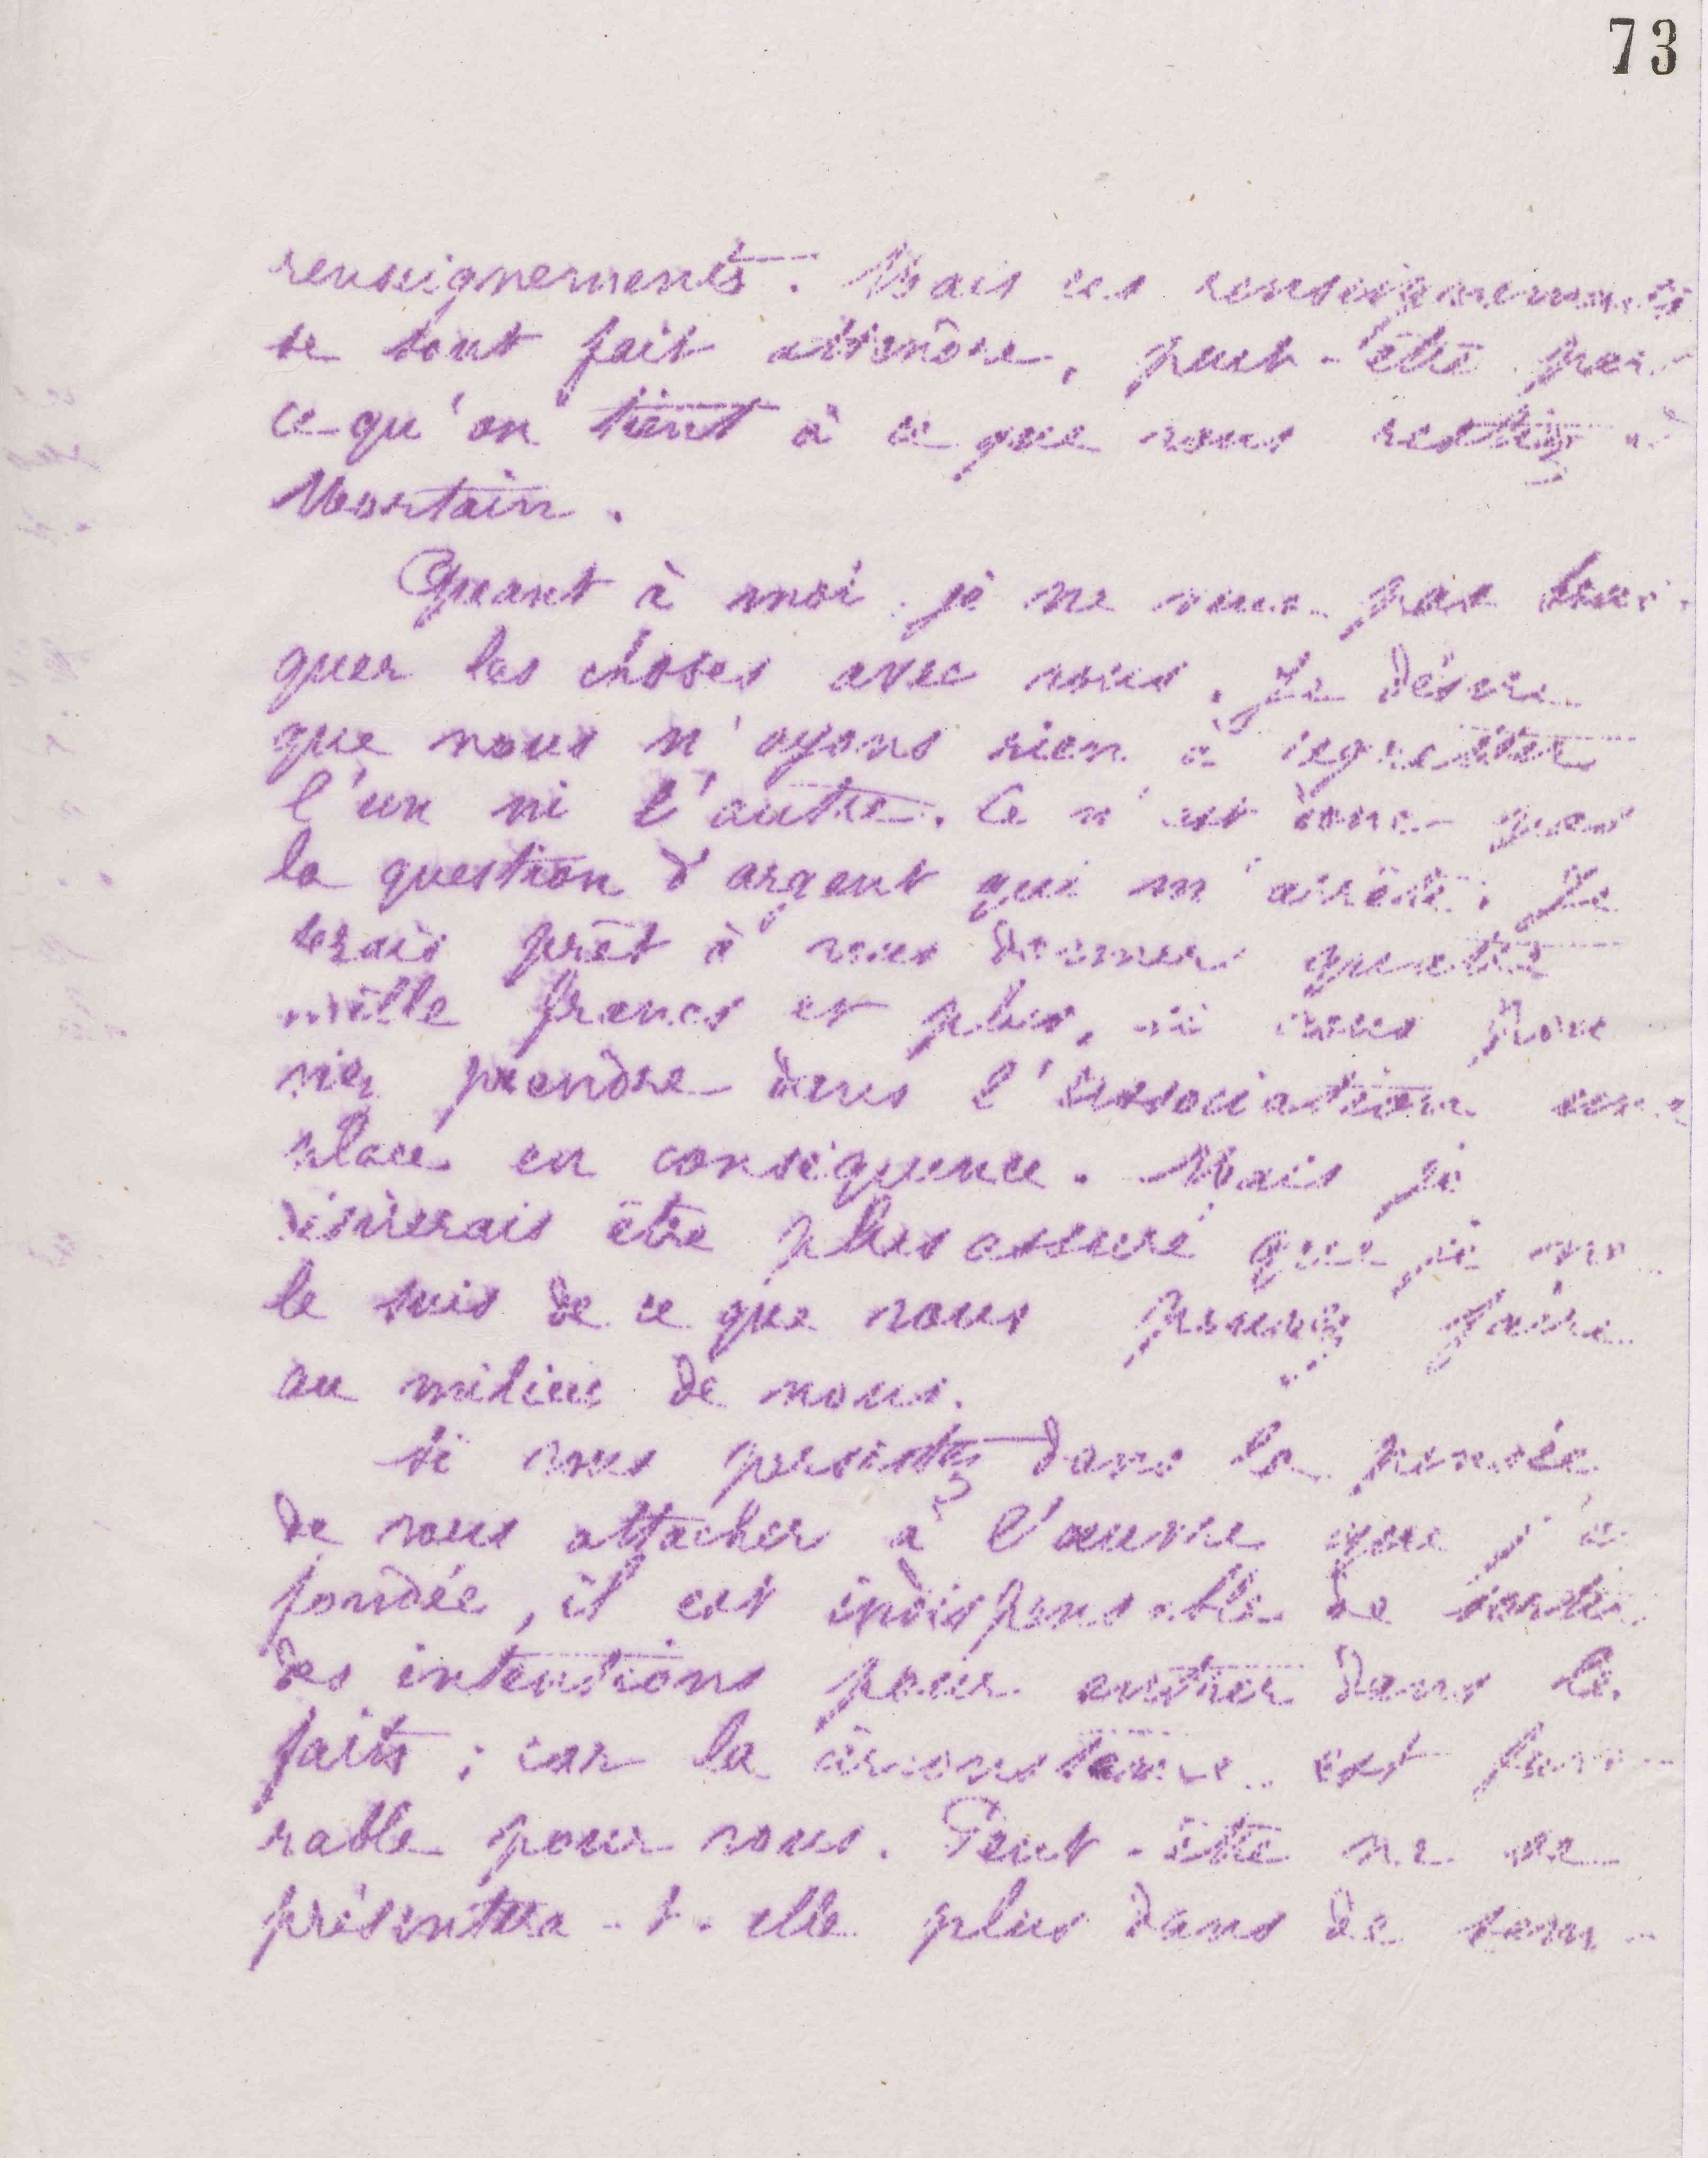 73
renseignements. Mais ces renseignements
se sont fait attendre, peut-être par
ce qu'on tient à ce que vous restiez à
Mortain.
Quant à moi je ne veux pas brus
quer les choses avec vous. Je désire
que nous n'ayons rien à regretter
l'un ni l'autre. Ce n'est donc pas
la question d'argent qui m'arrête. Je
serais prêt à vous donner quatre
mille francs et plus, si vous pou
viez prendre dans l'association une
place en conséquence. Mais je
désirerais être plus assuré que je ne
le suis de ce que vous pouvez faire
au milieu de nous.
Si vous persistez dans la pensée
de vous attacher à l'œuvre que j'ai
fondée, il est indispensable de sortir
des intentions pour entrer dans les
faits ; car la circonstance est favo
rable pour vous. Peut-être ne se
présentera-t-elle plus dans de sem-